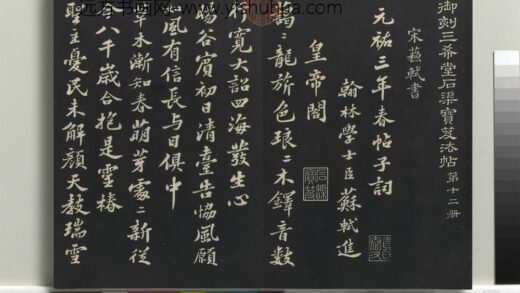 御刻三希堂石渠寶笈法帖 第十二冊
宋蘇軾書
元祐三年春帖子詞
翰林學士臣蘇軾進
皇帝閣
靄〻龍旂色琅〻木鐸音數
行寬大詔四海發生心
暘谷賓初日清臺告協風願
風有信長與日俱中
木漸知春萌芽處〻新從
八千歲合抱是靈椿
聖主憂民未解顏天教瑞雪
石渠寶笈
远方书画网